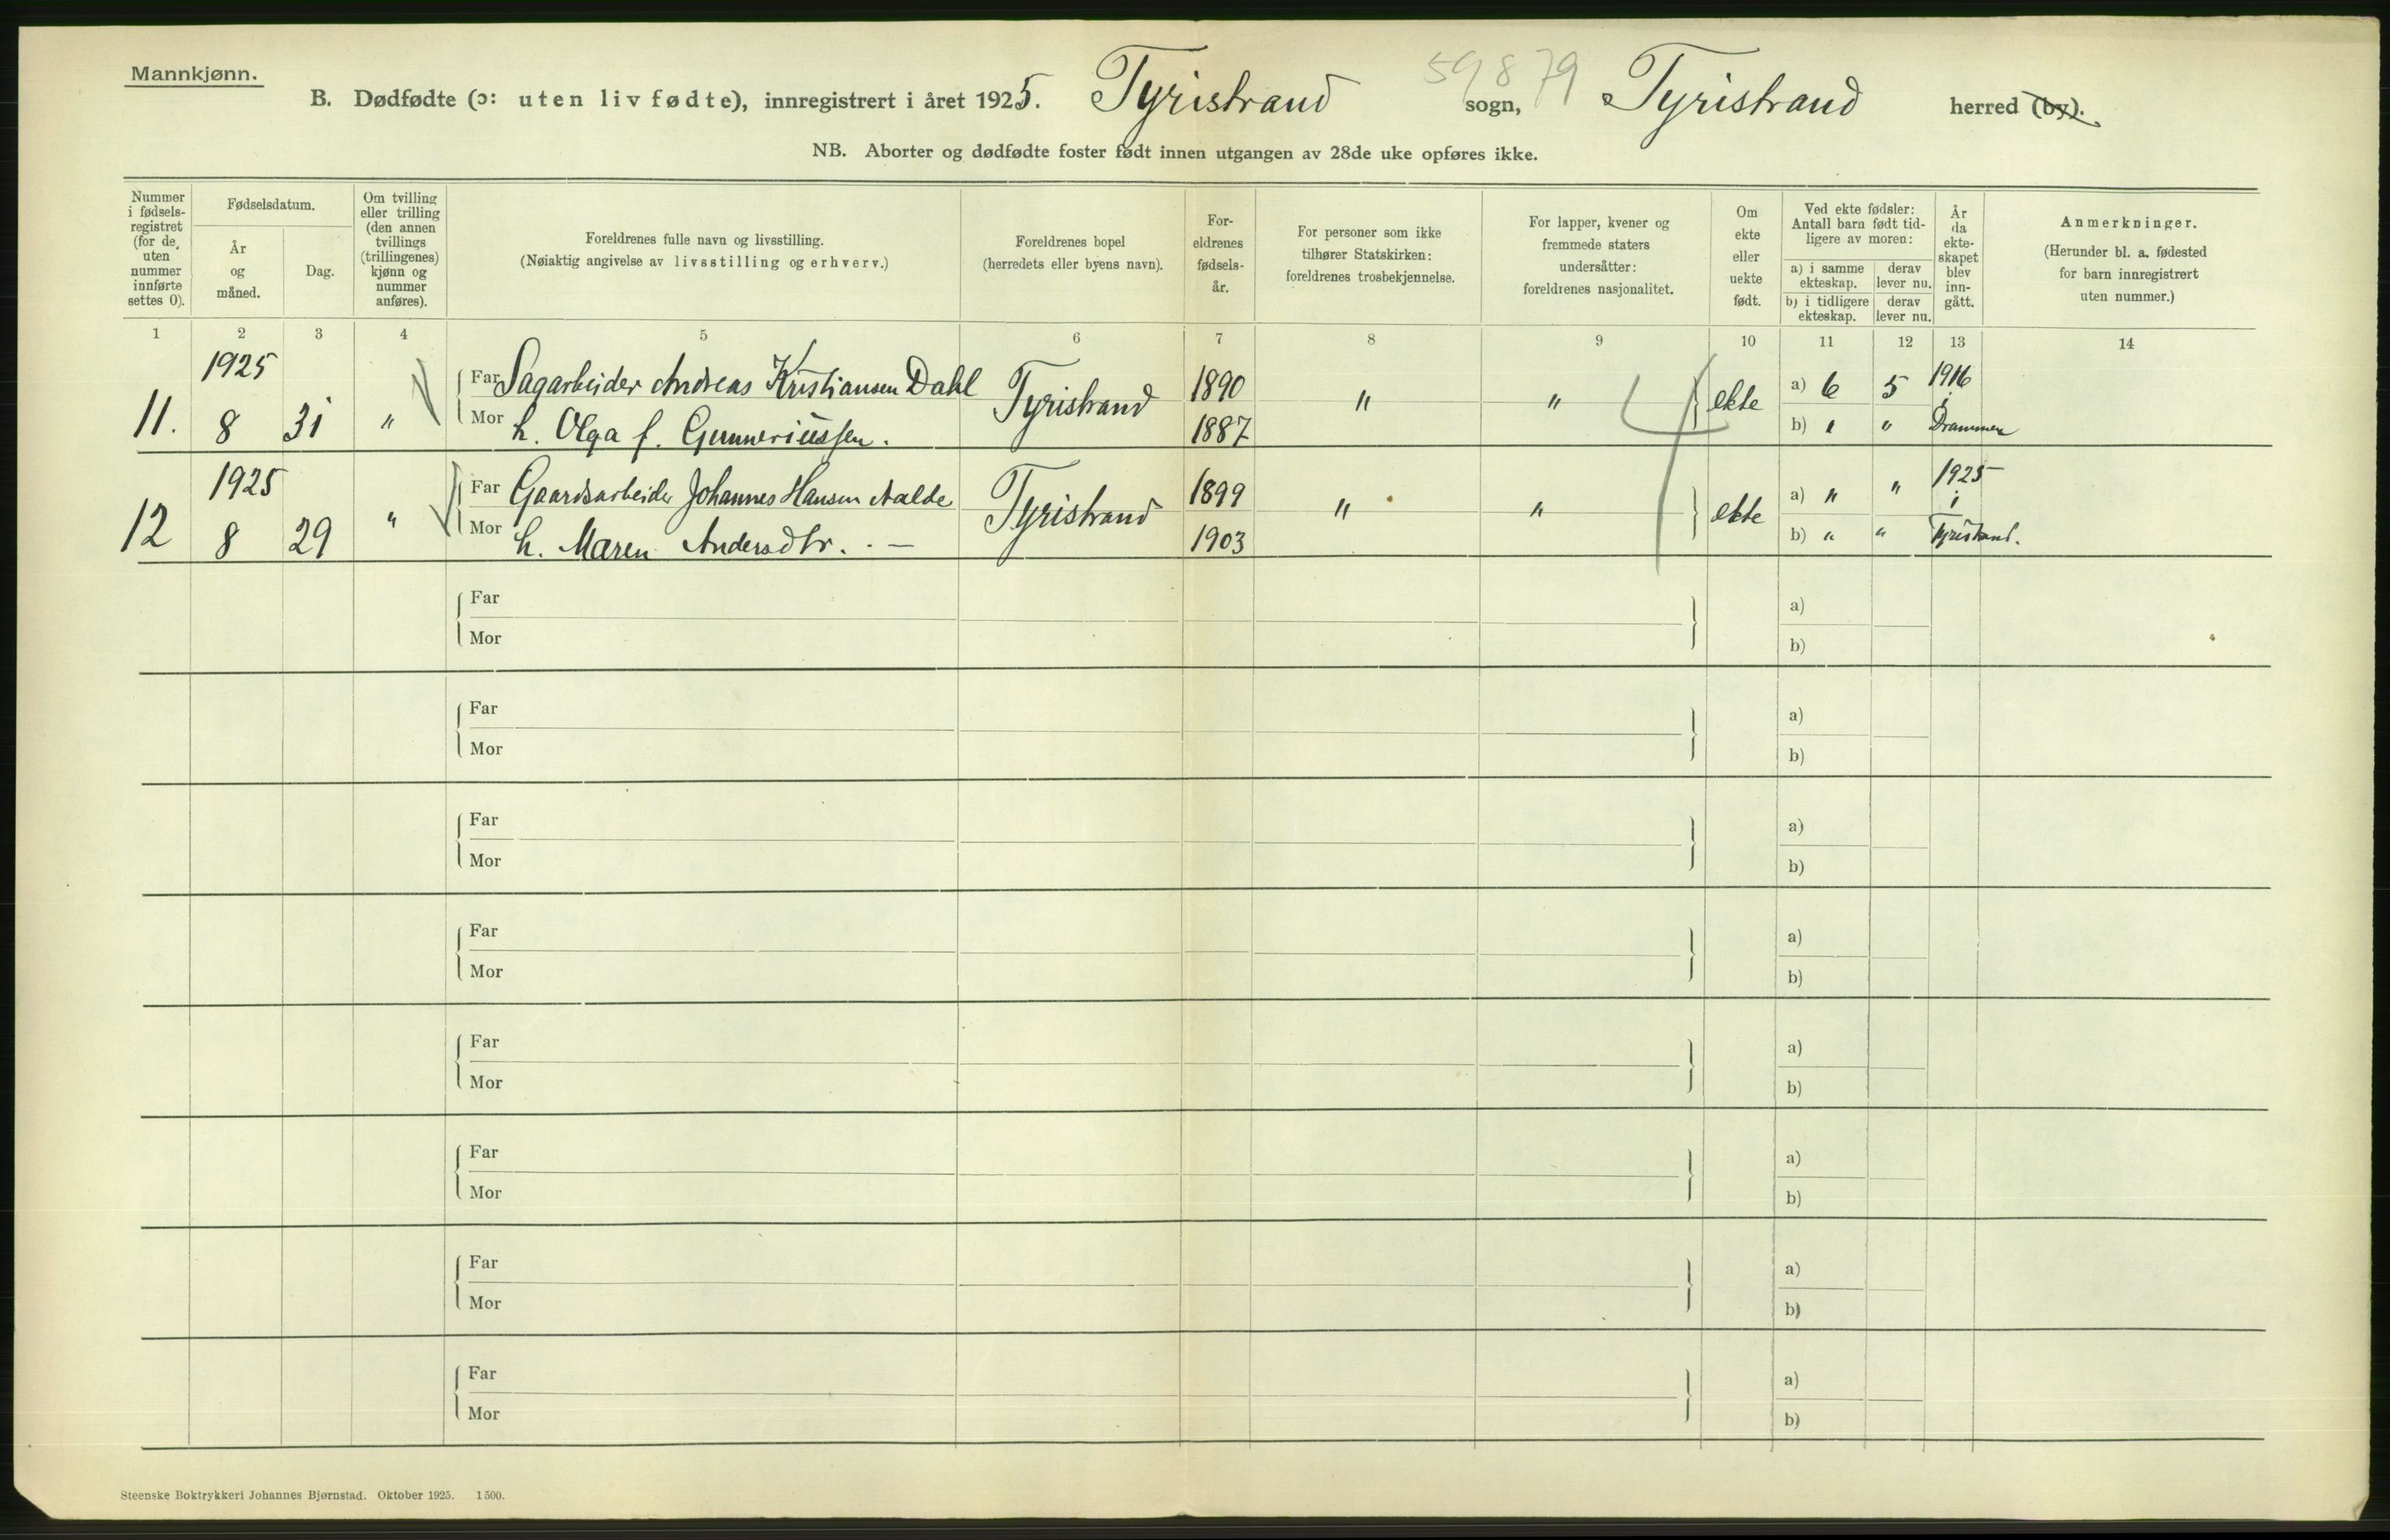 Mannkjønn.
B. Dødfødte (ɔ: uten liv fødte), innregistrert i året 1925. Tyristrand sogn, Tyristrand herred (by).
59879
NB. Aborter og dødfødte foster født innen utgangen av 28de uke opføres ikke.
Nummer i fødsels-registret (for de uten nummer innførte settes 0).
Fødselsdatum.
År og måned.
Dag.
Om tvilling eller trilling (den annen tvillings (trillingenes) kjønn og nummer anføres).
Foreldrenes fulle navn og livsstilling.
(Nøiaktig angivelse av livsstilling og erhverv.)
Foreldrenes bopel
(herredets eller byens navn).
For-eldrenes fødsels-år.
For personer som ikke tilhører Statskirken: foreldrenes trosbekjennelse.
For lapper, kvener og fremmede staters undersåtter: foreldrenes nasjonalitet.
Om ekte eller uekte født.
Ved ekte fødsler: Antall barn født tid-ligere av moren:
a) i samme ekteskap.
derav lever nu.
b) i tidligere ekteskap.
derav lever nu.
År da ekte-skapet blev inn-gått.
Anmerkninger.
(Herunder bl. a. fødested for barn innregistrert uten nummer.)
1 2 3 4 5 6 7 8 9 10 11 12 13 14
1925
11. 8 31 "
Far Sagarbeider Andreas Kristiansen Dahl Tyristrand 1890 " " ekte a) 6 5 1916
Mor h. Olga f. Gunneriussen. 1887 b) " " i Drammen
1925
12 8 29 "
Far Gaardsarbeider Johannes Hansen Aalde Tyristrand 1899 " " ekte a) " " 1925
Mor h. Maren Andersdtr. - — 1903 b) " " i Tyristrand.
Far a)
Mor b)
Far a)
Mor b)
Far a)
Mor b)
Far a)
Mor b)
Far a)
Mor b)
Far a)
Mor b)
Far a)
Mor b)
Far a)
Mor b)
Steenske Boktrykkeri Johannes Bjørnstad. Oktober 1925. 1500.